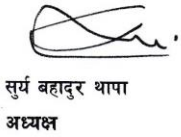 सुर्य बहादुर थापा
अध्यक्ष